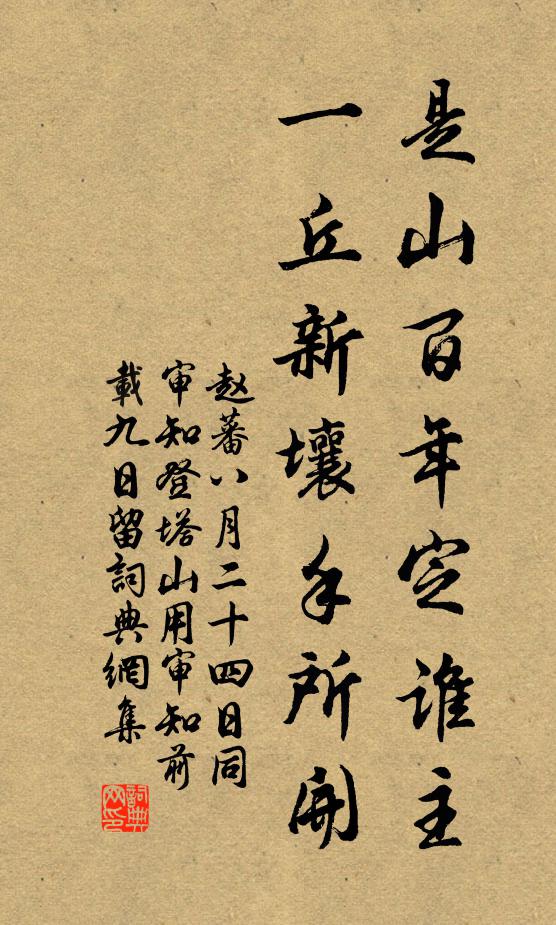 是山百年定谁主
一丘新壤手所開
赵蕃八月二十四日同
审知登塔山用审知前
載九日留詞典網集
詞典
网印